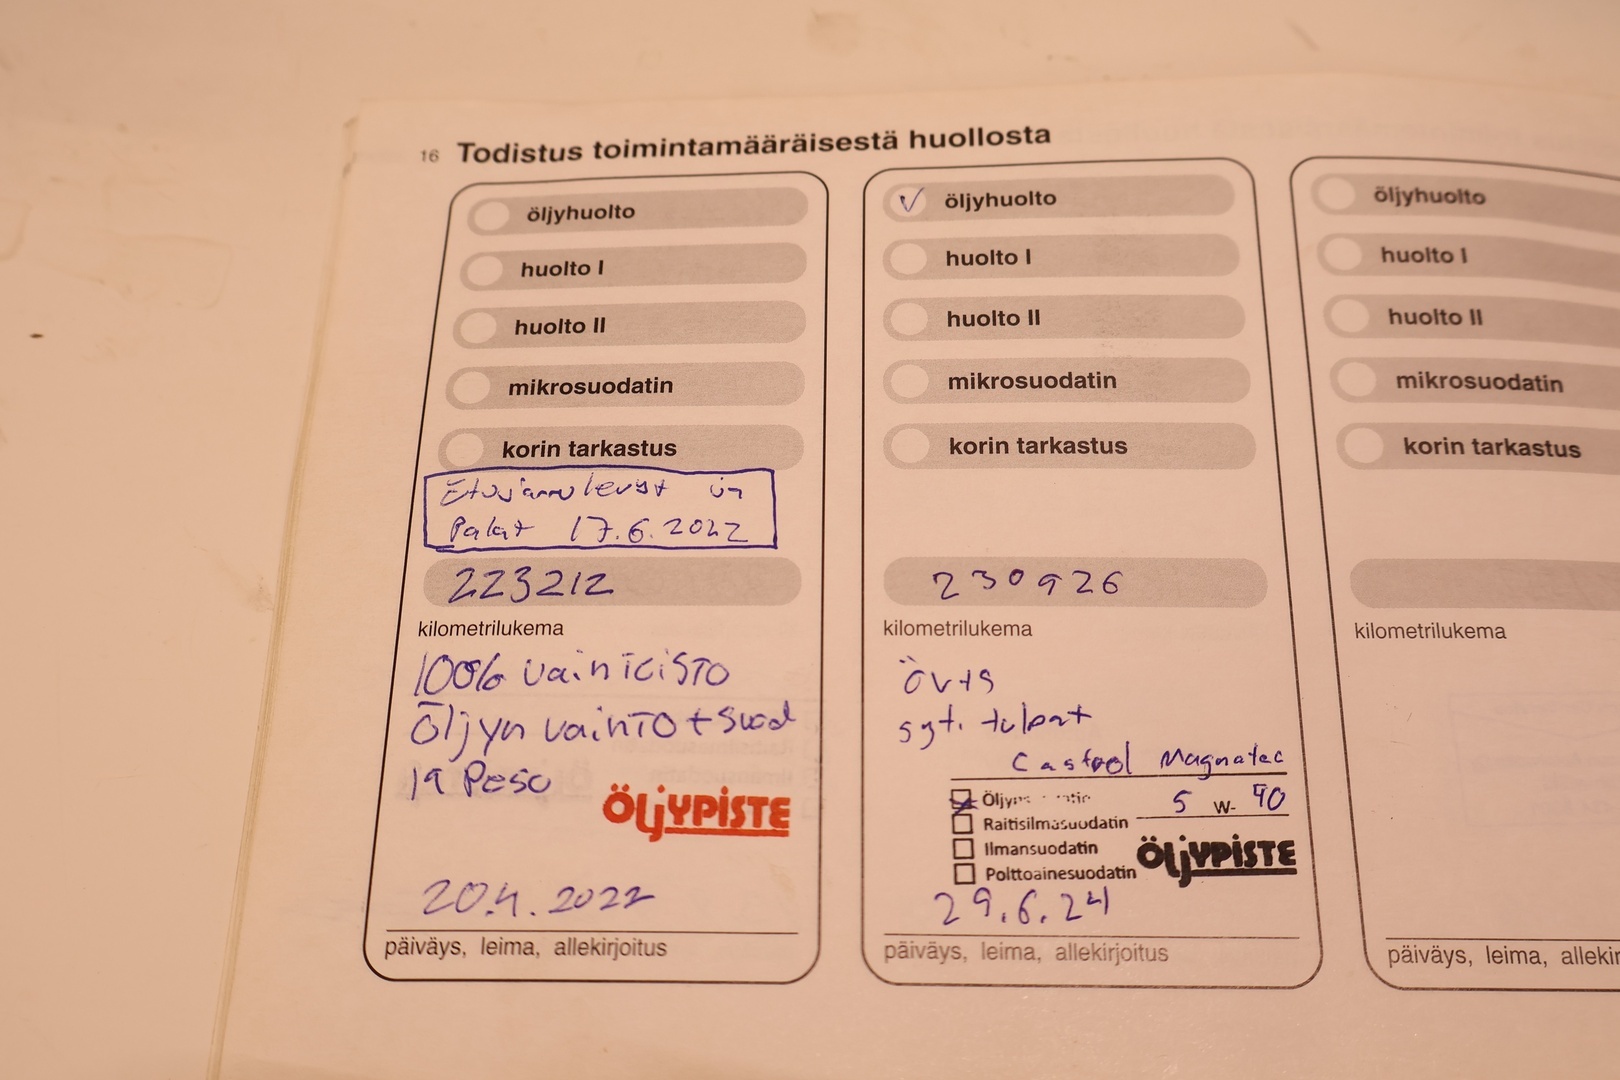 16 Todistus toimintamääräisestä huollosta
öljyhuolto
huolto I
huolto II
mikrosuodatin
korin tarkastus
Etujarrulevyt ja
Palat 17.6.2022
223212
kilometrilukema
100%
Öljyn vaihto + suod
Pesu
ÖLJYPISTE
20.4.2022
päiväys, leima, allekirjoitus
öljyhuolto
huolto I
huolto II
mikrosuodatin
korin tarkastus
230926
kilometrilukema
öv+s
syt. tulpat
Castrol Magnatec
5 W- 40
Raitisilmasuodatin
Ilmansuodatin
Polttoainesuodatin
ÖLJYPISTE
29.6.24
päiväys, leima, allekirjoitus
öljyhuolto
huolto I
huolto II
mikrosuodatin
korin tarkastus
kilometrilukema
päiväys, leima, allekir